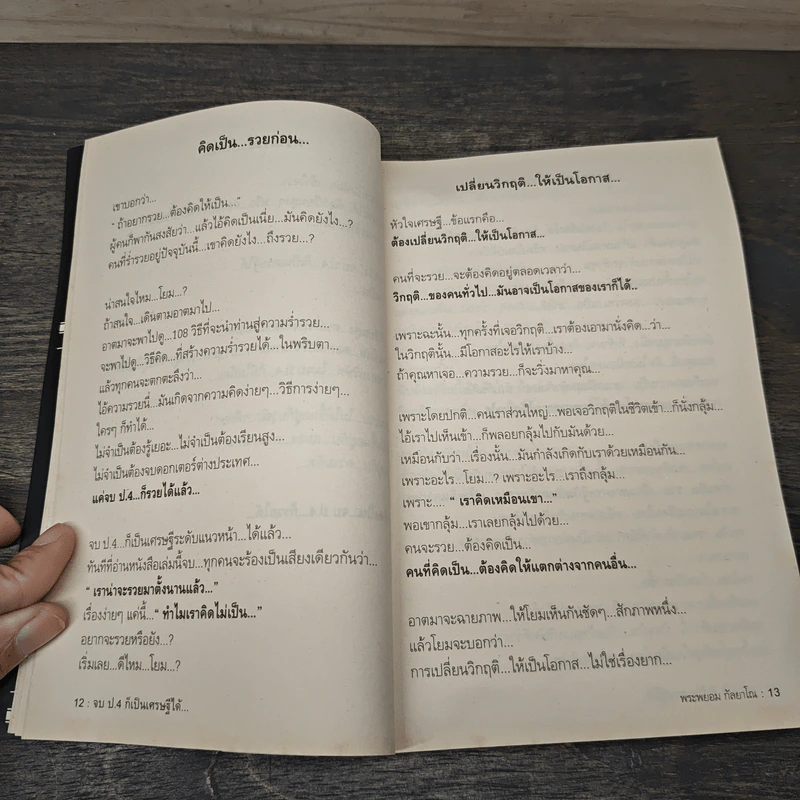 คิดเป็น...รวยก่อน...
เขาบอกว่า...
" ถ้าอยากรวย...ต้องคิดให้เป็น..."
ผู้คนก็พากันสงสัยว่า...แล้วไอ้คิดเป็นเนี่ย...มันคิดยังไง...?
คนที่ร่ำรวยอยู่ปัจจุบันนี้...เขาคิดยังไง...ถึงรวย...?
น่าสนใจไหม...โยม...?
ถ้าสนใจ...เดินตามอาตมาไป...
อาตมาจะพาไปดู...108 วิธีที่จะนำท่านสู่ความร่ำรวย...
จะพาไปดู...วิธีคิด...ที่สร้างความร่ำรวยได้...ในพริบตา...
แล้วทุกคนจะตกตะลึงว่า...
ไอ้ความรวยนี่...มันเกิดจากความคิดง่ายๆ...วิธีการง่ายๆ...
ใครๆ ก็ทำได้...
ไม่จำเป็นต้องรู้เยอะ...ไม่จำเป็นต้องเรียนสูง...
ไม่จำเป็นต้องจบดอกเตอร์ต่างประเทศ...
แค่จบ ป.4...ก็รวยได้แล้ว...
จบ ป.4...ก็เป็นเศรษฐีระดับแนวหน้า...ได้แล้ว...
ทันทีที่อ่านหนังสือเล่มนี้จบ...ทุกคนจะร้องเป็นเสียงเดียวกันว่า...
" เราน่าจะรวยมาตั้งนานแล้ว..."
เรื่องง่ายๆ แค่นี้..." ทำไมเราคิดไม่เป็น..."
อยากจะรวยหรือยัง...?
เริ่มเลย...ดีไหม...โยม...?
12 : จบ ป.4 ก็เป็นเศรษฐีได้...
เปลี่ยนวิกฤติ...ให้เป็นโอกาส...
หัวใจเศรษฐี...ข้อแรกคือ...
ต้องเปลี่ยนวิกฤติ...ให้เป็นโอกาส...
คนที่จะรวย...จะต้องคิดอยู่ตลอดเวลาว่า...
วิกฤติ...ของคนทั่วไป...มันอาจเป็นโอกาสของเราก็ได้..
เพราะฉะนั้น...ทุกครั้งที่เจอวิกฤติ...เราต้องเอามานั่งคิด...ว่า...
ในวิกฤตินั้น...มีโอกาสอะไรให้เราบ้าง...
ถ้าคุณหาเจอ...ความรวย...ก็จะวิ่งมาหาคุณ...
เพราะโดยปกติ...คนเราส่วนใหญ่...พอเจอวิกฤติในชีวิตเข้า...ก็นั่งกลุ้ม...
ไอ้เราไปเห็นเข้า...ก็พลอยกลุ้มไปกับมันด้วย...
เหมือนกับว่า...เรื่องนั้น...มันกำลังเกิดกับเราด้วยเหมือนกัน...
เพราะอะไร...โยม...? เพราะอะไร...เราถึงกลุ้ม...
เพราะ.... " เราคิดเหมือนเขา..."
พอเขากลุ้ม...เราเลยกลุ้มไปด้วย...
คนจะรวย...ต้องคิดเป็น...
คนที่คิดเป็น...ต้องคิดให้แตกต่างจากคนอื่น...
อาตมาจะฉายภาพ...ให้โยมเห็นกันชัดๆ...สักภาพหนึ่ง...
แล้วโยมจะบอกว่า...
การเปลี่ยนวิกฤติ...ให้เป็นโอกาส...ไม่ใช่เรื่องยาก...
พระพยอม กัลยาโณ : 13